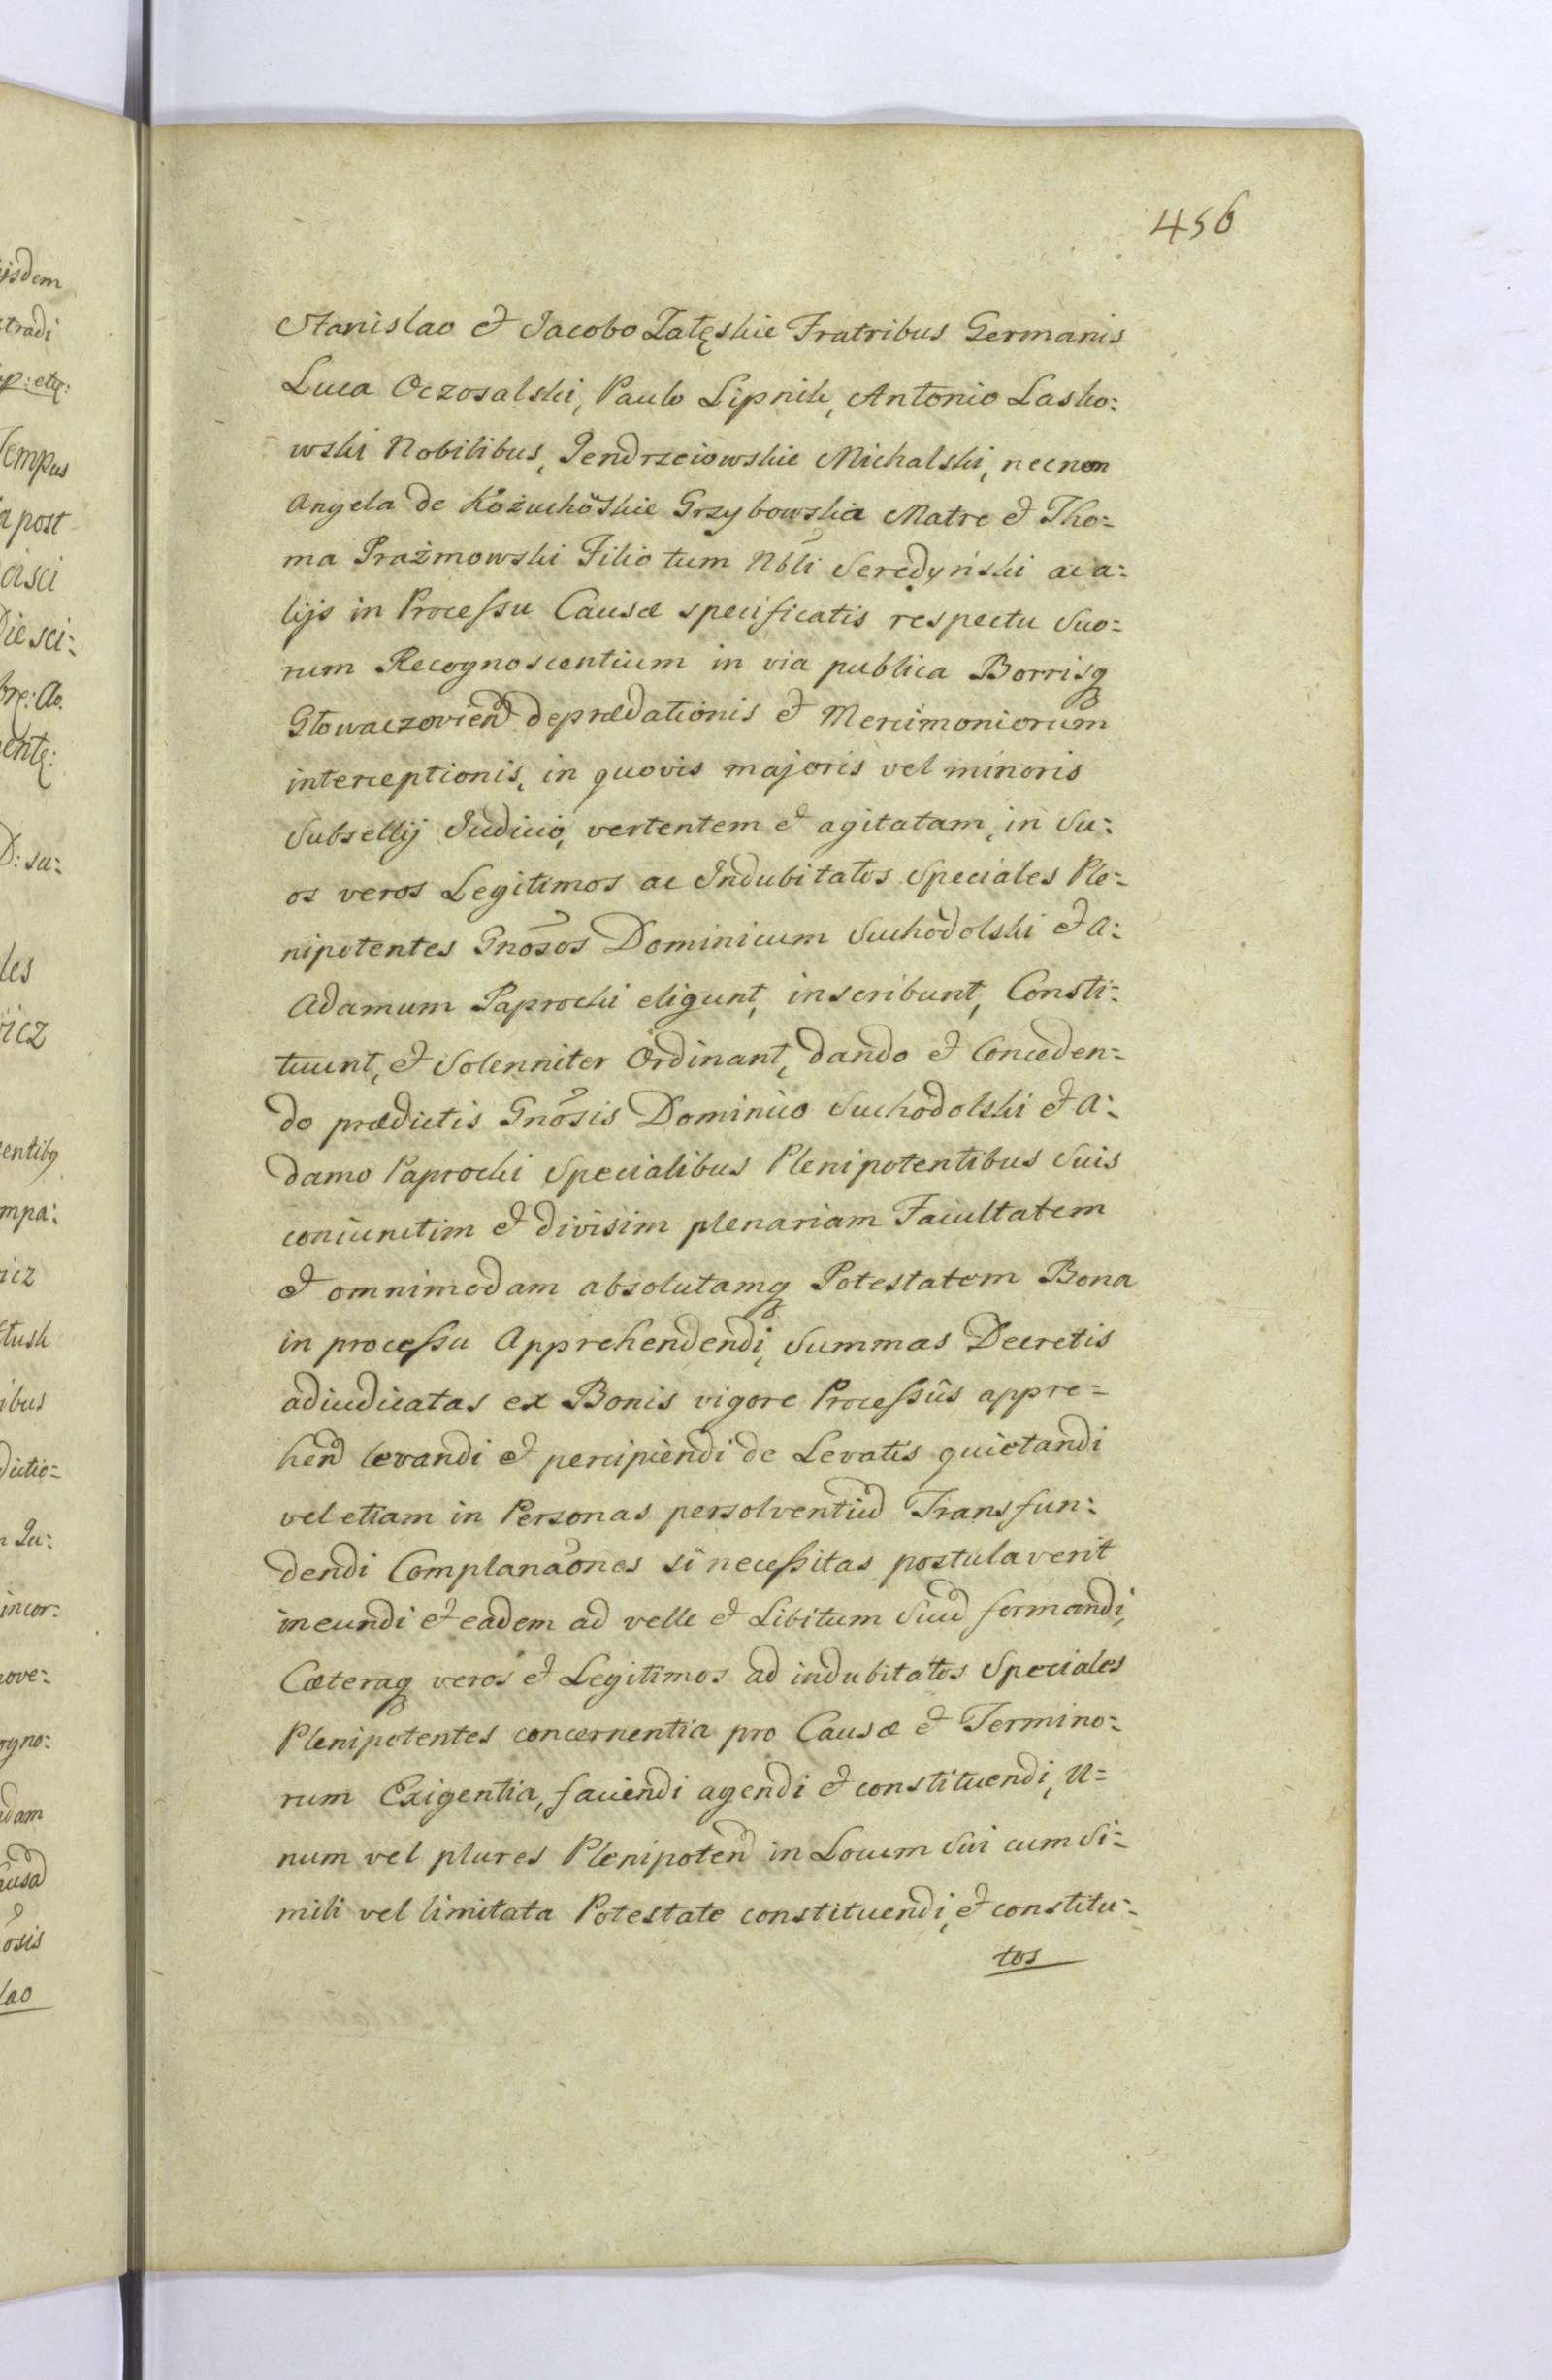 456
Stanislao et Jacobo Załęskie Fratribus Germanis
Luca Oczosalski, Paulo Lipnik, Antonio Lasko:
wski Nobilibus, Jendrzeiowskie Michalski, necnon
Angela de Kożuchõskie Grzybowska Matre et Tho=
ma Prażmowski Filio tum Nbli Seredyński ac a:
lijs in Processu Causæ specificatis respectu Suo=
rum Recognoscentium in via publica Borrisq
Głowaczoviend deprædationis et Mercimoniorum
interceptionis, in quovis majoris vel minoris
Subsellij Judicio, vertentem et agitatam, in Su:
os veros Legitimos ac Indubitatos Speciales Ple=
nipotentes Gnosos Dominicum Suchodolski et A:
Adamum Paprocki eligunt, inscribunt, Consti:
tuunt, et Solenniter Ordinant, dando et Conceden=
do prædictis Gnosis Dominico Suchodolski et A:
damo Paprocki Specialibus Plenipotentibus Suis
coniunctim et divisim plenariam Facultatem
et omnimodam absolutamq Potestatem Bona
in processu Apprehendendi, Summas Decretis
adiudicatas ex Bonis vigore Processûs appre=
hend levandi et percipiendi de Levatis quietandi
vel etiam in Personas persolventiud Transfun:
dendi Complanaones si necessitas postulaverit
ineundi et eadem ad velle et Libitum Suud formandi,
Cæteraq veros et Legitimos ad indubitatos Speciales
Plenipotentes concernentia pro Causæ et Termino=
rum Exigentia, faciendi agendi et constituendi, U=
num vel plures Plenipotend in Locum Sui cum Si=
mili vel limitata Potestate constituendi, et constitu=
tos